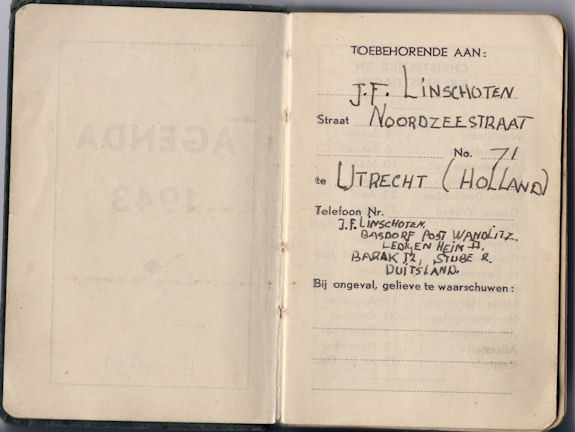 TOEBEHORENDE AAN:
J.F. LINSCHOTEN
Straat NOORDZEESTRAAT
No. 71
te UTRECHT (HOLLAND)
Telefoon Nr.
J.F. LINSCHOTEN.
BASDORF POST WANDLITZ.
LEDIGEN HEIM II.
BARAK 12, STUBE 2.
DUITSLAND.
Bij ongeval, gelieve te waarschuwen:
AGENDA
1943